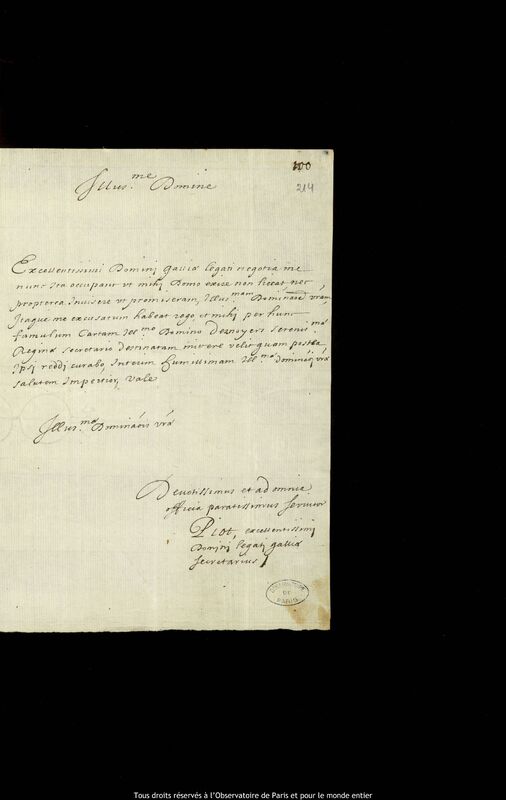 100
214
Illus.me Domine
Excellentissimi Dominj galliæ legati negotia me
nunc ita occupant vt mihi Domo exire non liceat nec
propterea Inuisere vt promiseram, Illus.mam Dominaõe vram
Itaque me excusatum habeat rogo, et mihi per hunc
famulum Cartam Ill.mo Domino Desnoyers sereniss.mæ
Reginæ secretario destinatam mittere velit quam postea,
Ipsi reddi curabo, Interim humillimam Ill.mæ Dominãoj vræ
salutem Impertior, vale
Illus.mæ Dominãois vræ
Deuotissimus et ad omnia
officia paratissimus seruitor
Piot, excellentissimj
Dominj legatj galliæ
secretarius
OBSERVATOIRE
DE
PARIS
Tous droits réservés à l'Observatoire de Paris et pour le monde entier